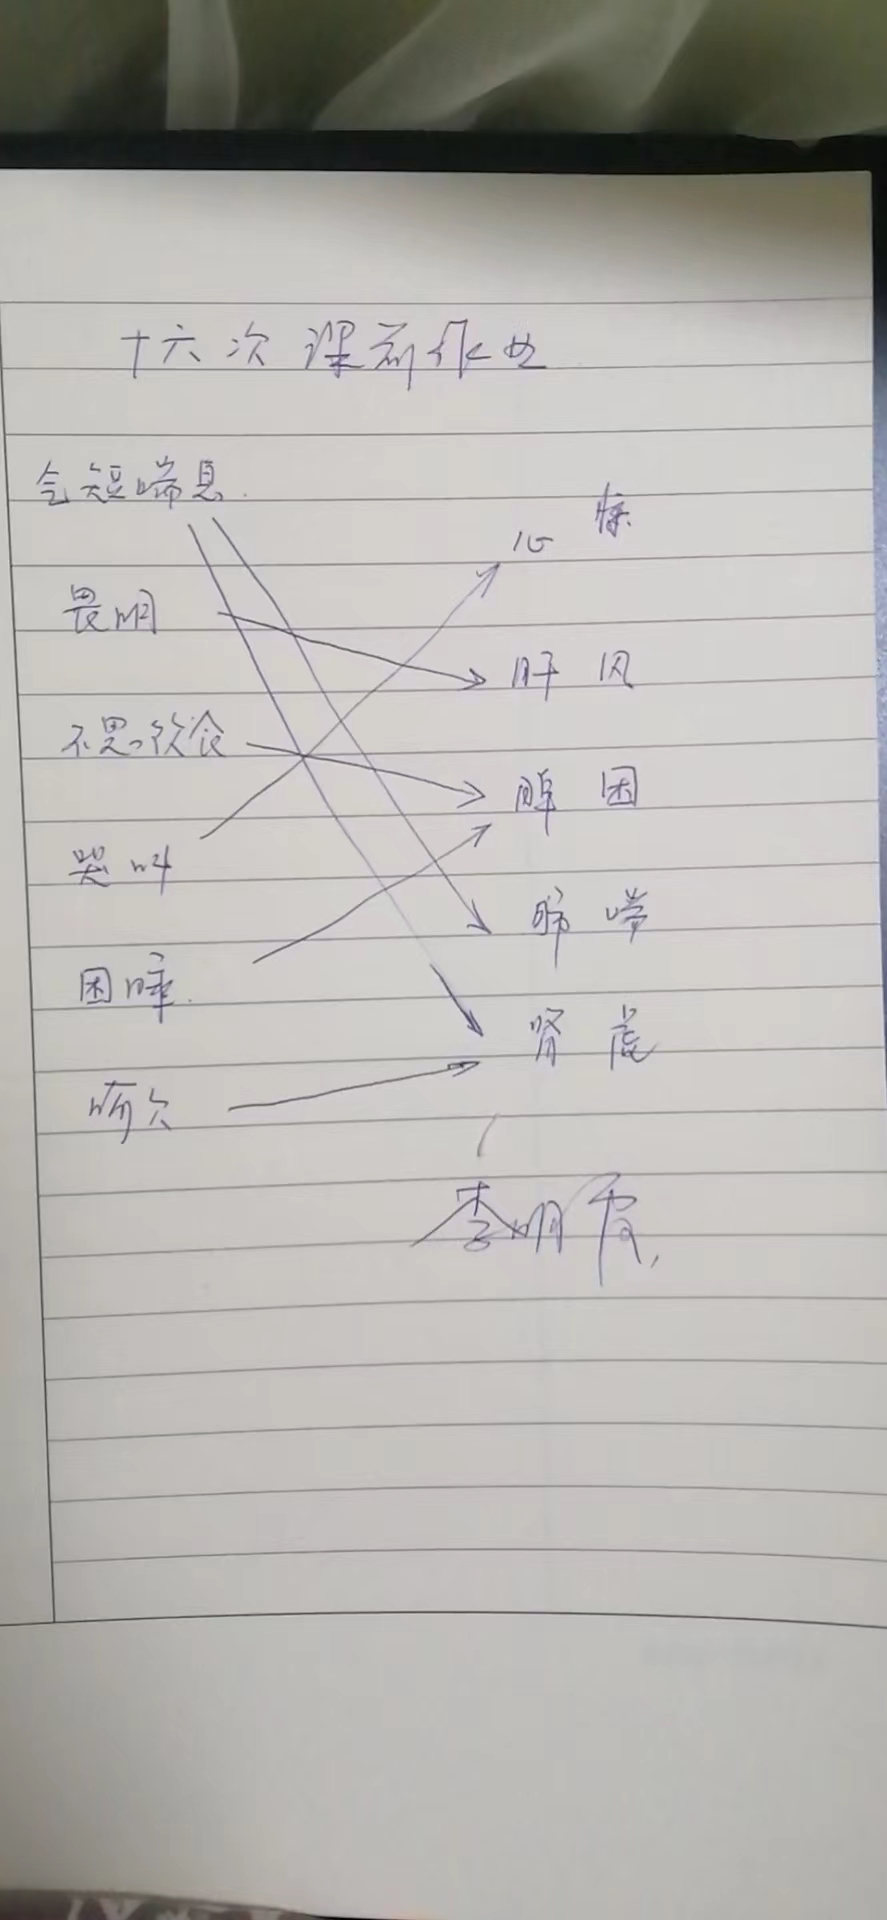 十六次 课前作业
气短喘息
心 惊
畏明
肝 风
不思饮食
脾 困
哭叫
肺 喘
困睡
肾 虚
呵欠
李明霞